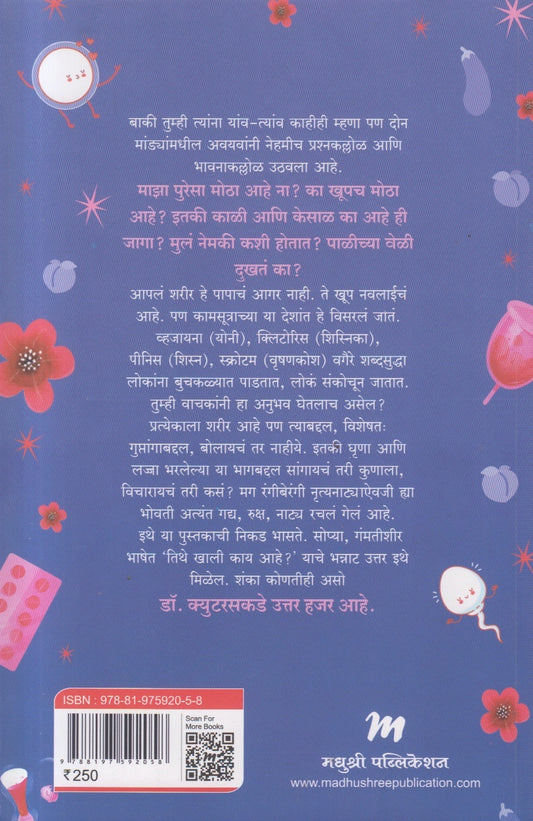 बाकी तुम्ही त्यांना यांव-त्यांव काहीही म्हणा पण दोन
मांड्यांमधील अवयवांनी नेहमीच प्रश्नकल्लोळ आणि
भावनाकल्लोळ उठवला आहे.
माझा पुरेसा मोठा आहे ना? का खूपच मोठा
आहे? इतकी काळी आणि केसाळ का आहे ही
जागा? मुलं नेमकी कशी होतात? पाळीच्या वेळी
दुखतं का?
आपलं शरीर हे पापाचं आगर नाही. ते खूप नवलाईचं
आहे. पण कामसूत्राच्या या देशांत हे विसरलं जातं.
व्हजायना (योनी), क्लिटोरिस (शिस्निका),
पीनिस (शिस्न), स्क्रोटम (वृषणकोश) वगैरे शब्दसुद्धा
लोकांना बुचकळ्यात पाडतात, लोकं संकोचून जातात.
तुम्ही वाचकांनी हा अनुभव घेतलाच असेल?
प्रत्येकाला शरीर आहे पण त्याबद्दल, विशेषतः
गुप्तांगाबद्दल, बोलायचं तर नाहीये. इतकी घृणा आणि
लज्जा भरलेल्या या भागबद्दल सांगायचं तरी कुणाला,
विचारायचं तरी कसं? मग रंगीबेरंगी नृत्यनाट्याऐवजी ह्या
भोवती अत्यंत गद्य, रुक्ष, नाट्य रचलं गेलं आहे.
इथे या पुस्तकाची निकड भासते. सोप्या, गंमतीशीर
भाषेत ‘तिथे खाली काय आहे?’ याचे भन्नाट उत्तर इथे
मिळेल. शंका कोणतीही असो
डॉ. क्युटरसकडे उत्तर हजर आहे.
ISBN : 978-81-975920-5-8
Scan For
More Books
9 788197 592058
₹ 250
m
मधुश्री पब्लिकेशन
www.madhushreepublication.com